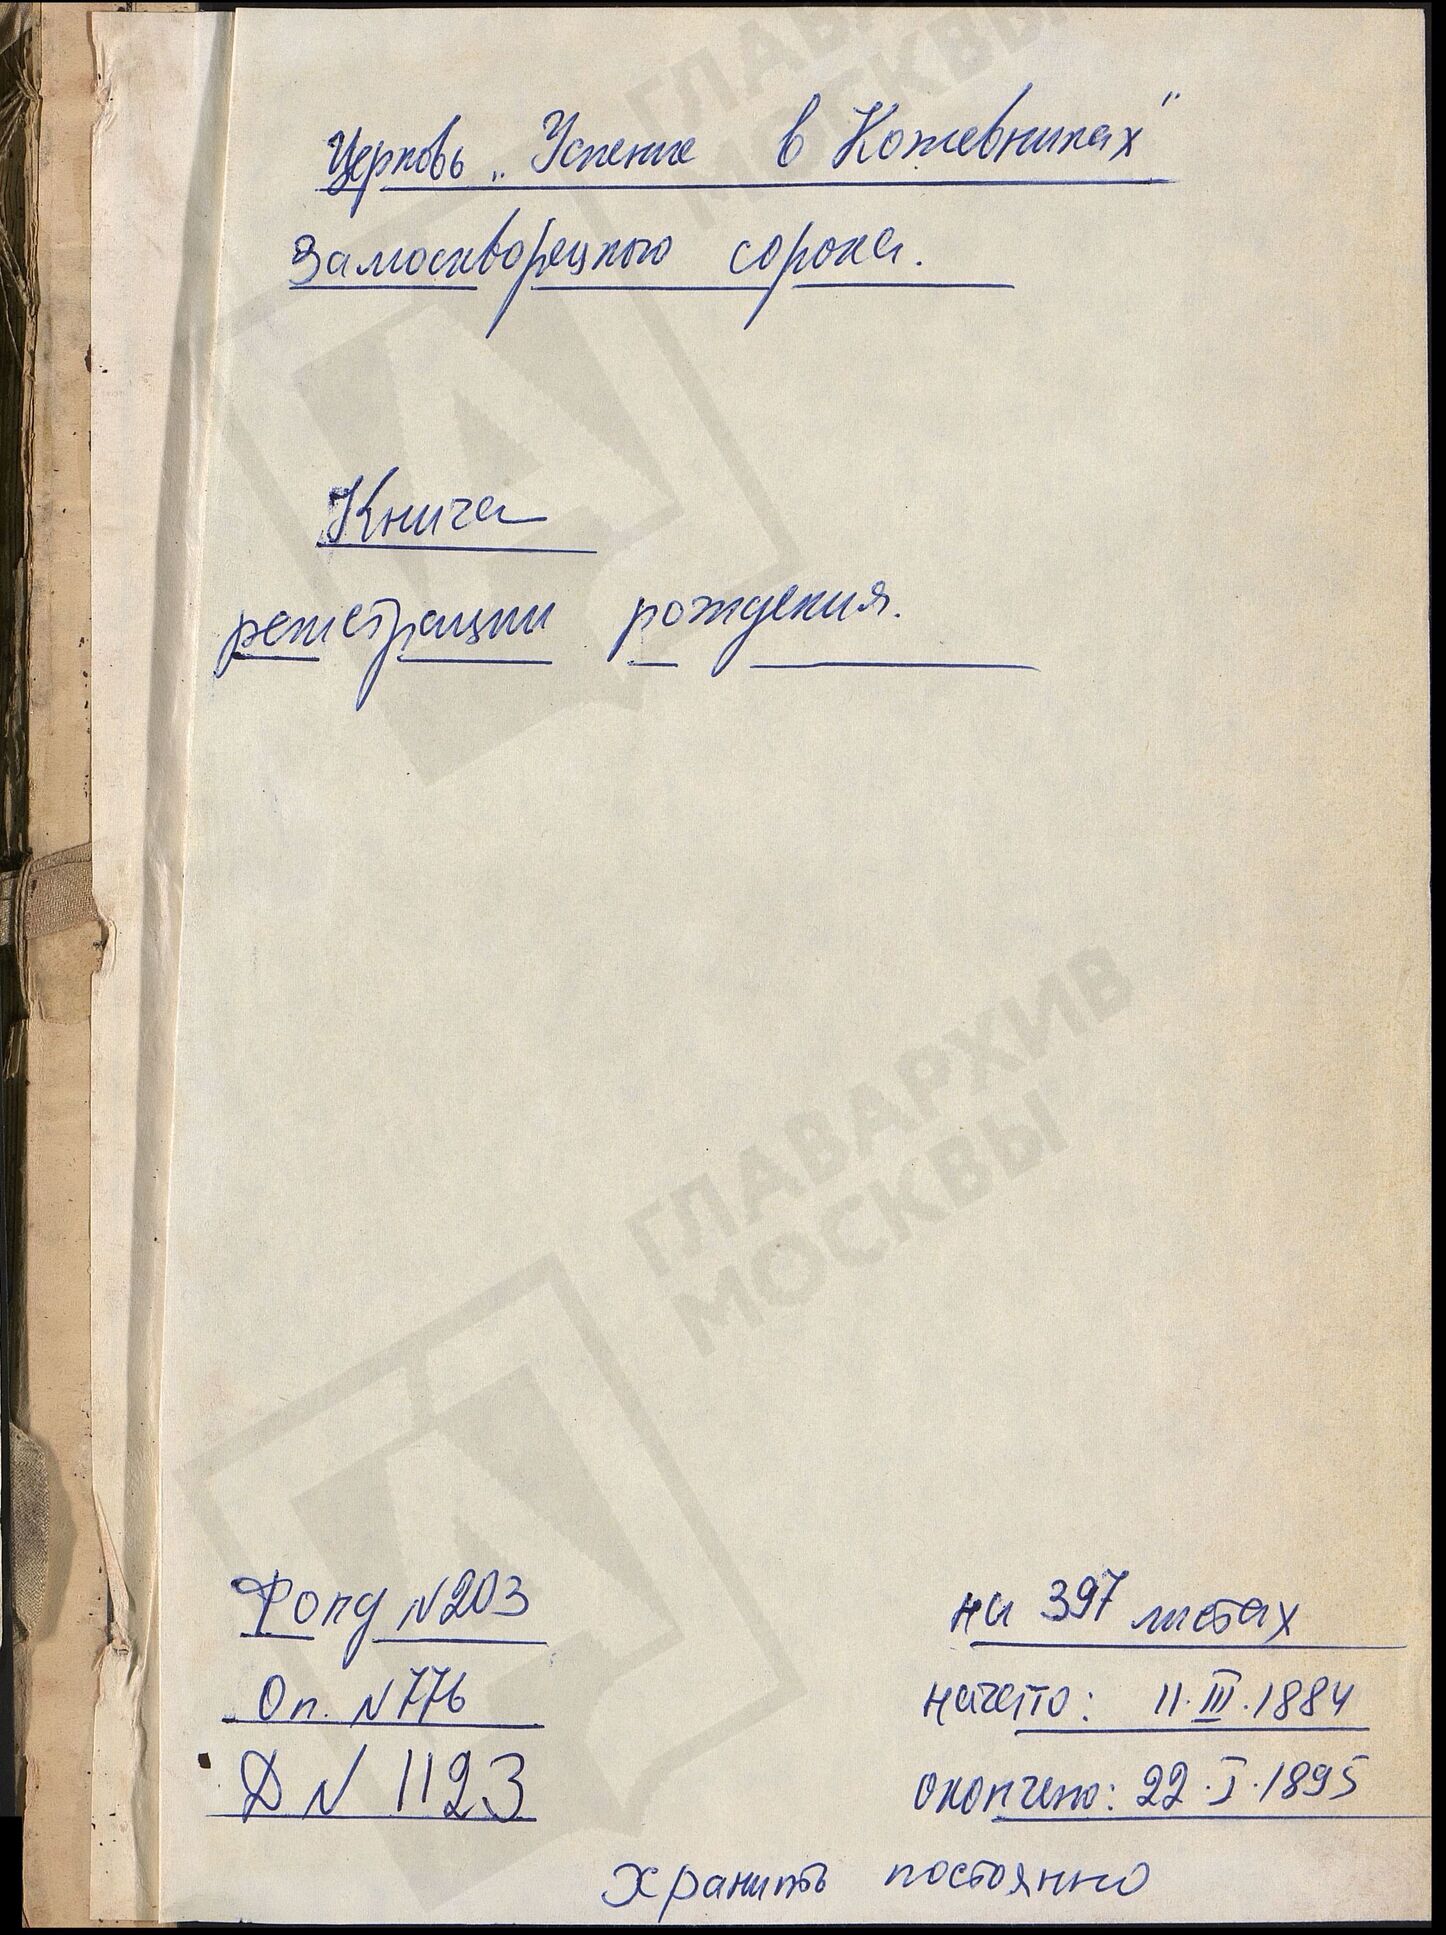 Церковь „Успение в Кожевниках"
Замоскворецкого сорока.
Книга
регистрации рождения.
Фонд №203
Оп. №776
Д № 1123
на 397 листах
начето: 11.III.1884
окончено: 22.I.1895
Хранить постоянно
ГЛАВАРХИВ
МОСКВЫ
ГЛАВАРХИВ
МОСКВЫ